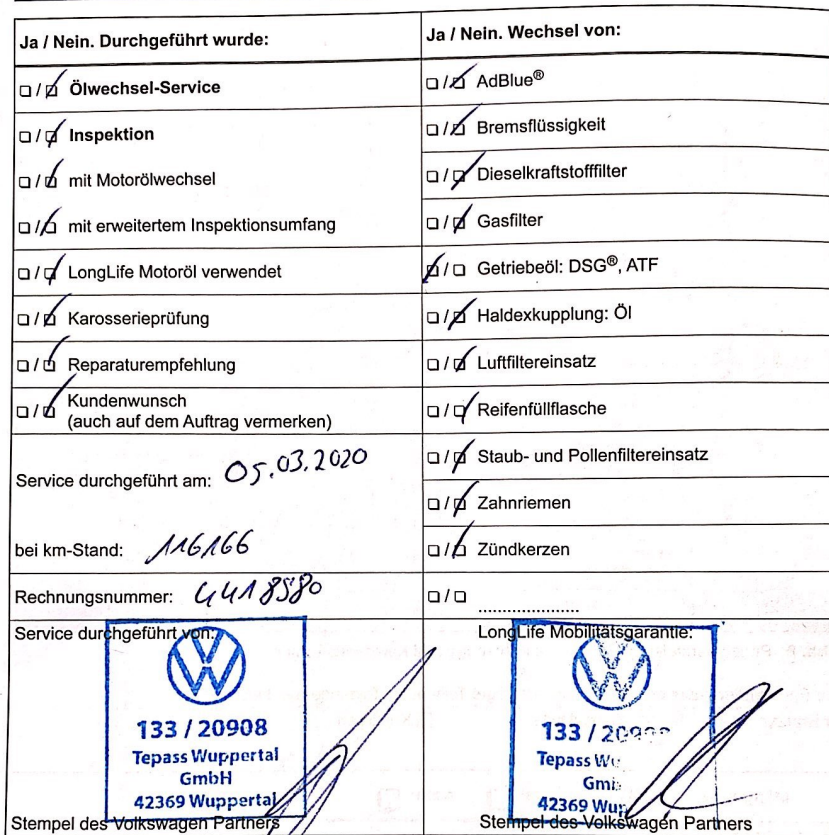 Ja / Nein. Durchgeführt wurde:
❑ / ❑ Ölwechsel-Service
❑ / ❑ Inspektion
❑ / ❑ mit Motorölwechsel
❑ / ❑ mit erweitertem Inspektionsumfang
❑ / ❑ LongLife Motoröl verwendet
❑ / ❑ Karosserieprüfung
❑ / ❑ Reparaturempfehlung
❑ / ❑ Kundenwunsch
(auch auf dem Auftrag vermerken)
Service durchgeführt am: 05.03.2020
bei km-Stand: 116166
Rechnungsnummer: 4418580
Service durchgeführt von:
133 / 20908
Tepass Wuppertal
GmbH
42369 Wuppertal
Stempel des Volkswagen Partners
Ja / Nein. Wechsel von:
❑ / ❑ AdBlue®
❑ / ❑ Bremsflüssigkeit
❑ / ❑ Dieselkraftstofffilter
❑ / ❑ Gasfilter
❑ / ❑ Getriebeöl: DSG®, ATF
❑ / ❑ Haldexkupplung: Öl
❑ / ❑ Luftfiltereinsatz
❑ / ❑ Reifenfüllflasche
❑ / ❑ Staub- und Pollenfiltereinsatz
❑ / ❑ Zahnriemen
❑ / ❑ Zündkerzen
❑ / ❑ ......................
LongLife Mobilitätsgarantie:
133 /
Tepass
42369
Stempel des Volkswagen Partners